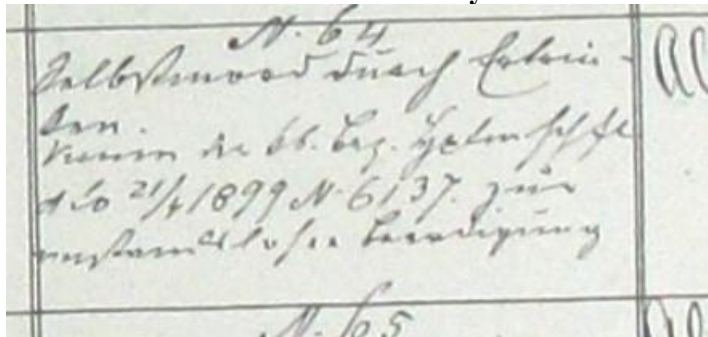 N. 64
Selbstmord durch Ertrin-
ken.
der kk. Bez. Hptmschft
ddo 21/4 1899 N. 6137. zur
anstandslosen Beerdigung
N. 65